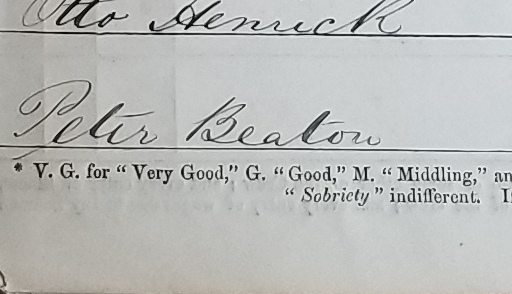 Otto Henrick
Peter Beaton
* V. G. for “ Very Good,” G. “ Good,” M. “ Middling,” an
“ Sobriety ” indifferent. I